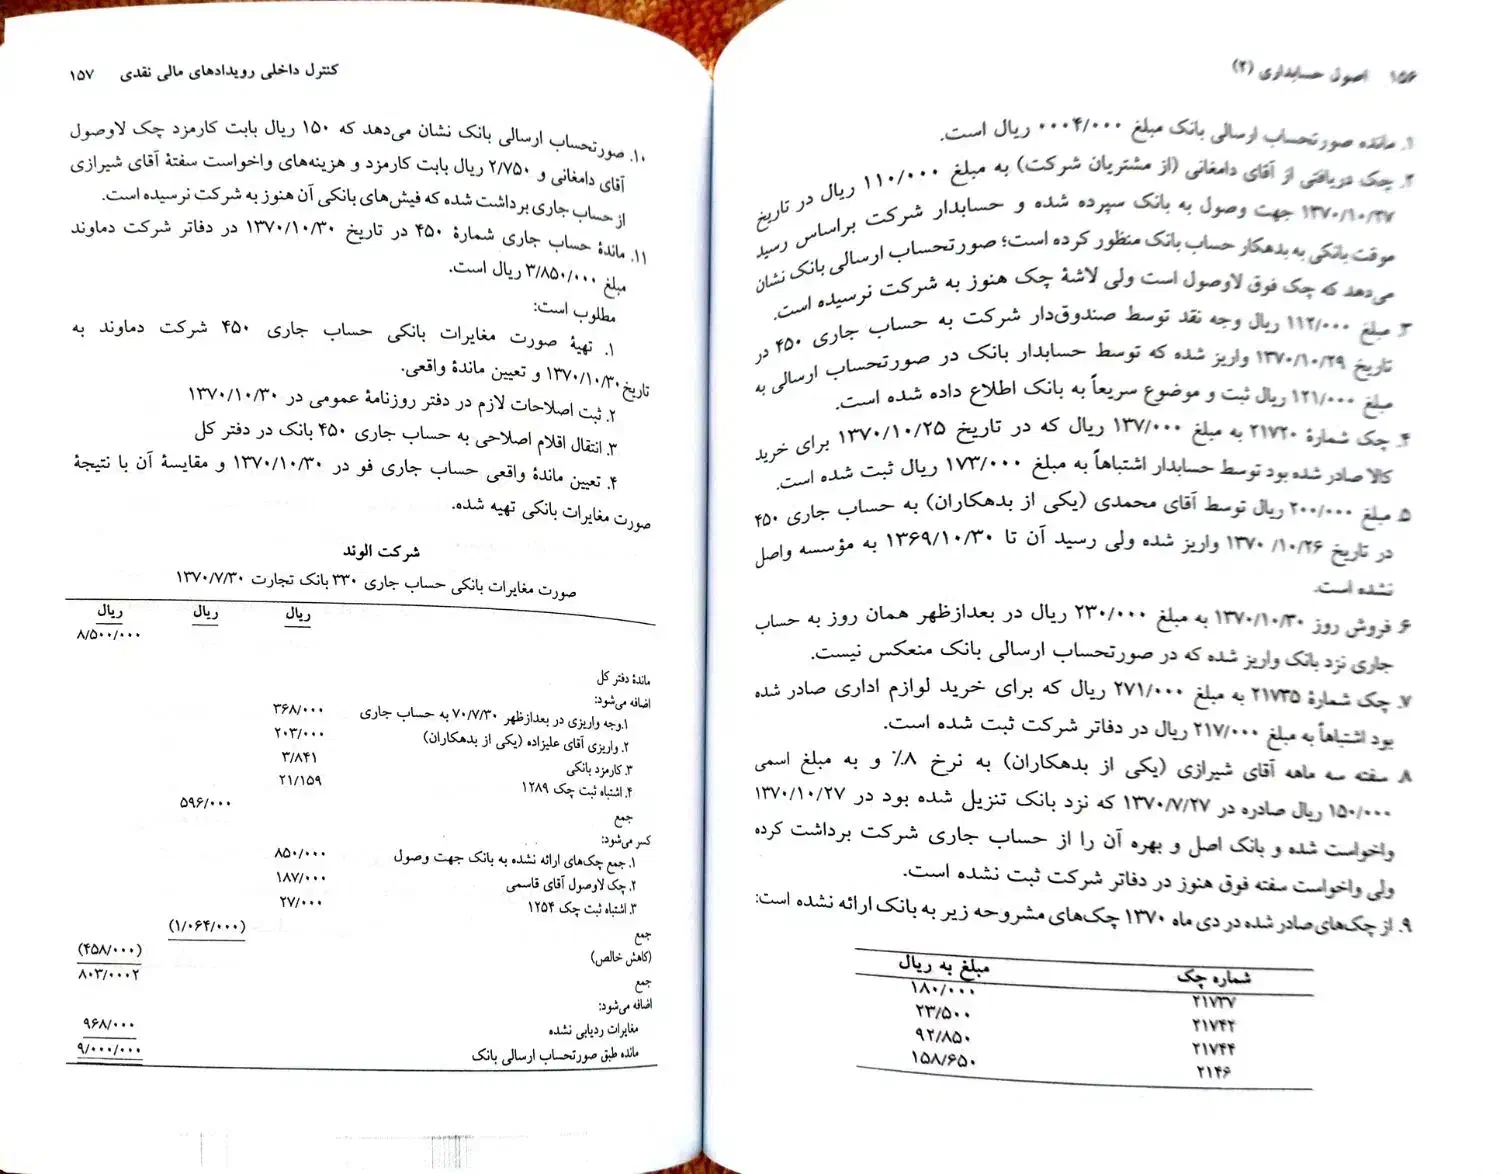 ۱۵۶ اصول حسابداری (۲)
۱. مانده صورتحساب ارسالی بانک مبلغ ۰۰۰۴/۰۰۰ ریال است.
۲. چک دریافتی از آقای دامغانی (از مشتریان شرکت) به مبلغ ۱۱۰/۰۰۰ ریال در تاریخ
۱۳۷۰/۱۰/۲۷ جهت وصول به بانک سپرده شده و حسابدار شرکت براساس رسید
موقت بانکی به بدهکار حساب بانک منظور کرده است؛ صورتحساب ارسالی بانک نشان
می‌دهد که چک فوق لاوصول است ولی لاشهٔ چک هنوز به شرکت نرسیده است.
۳. مبلغ ۱۱۲/۰۰۰ ریال وجه نقد توسط صندوق‌دار شرکت به حساب جاری ۴۵۰ در
تاریخ ۱۳۷۰/۱۰/۲۹ واریز شده که توسط حسابدار بانک در صورتحساب ارسالی به
مبلغ ۱۲۱/۰۰۰ ریال ثبت و موضوع سریعاً به بانک اطلاع داده شده است.
۴. چک شمارهٔ ۲۱۷۲۰ به مبلغ ۱۳۷/۰۰۰ ریال که در تاریخ ۱۳۷۰/۱۰/۲۵ برای خرید
کالا صادر شده بود توسط حسابدار اشتباهاً به مبلغ ۱۷۳/۰۰۰ ریال ثبت شده است.
۵. مبلغ ۲۰۰/۰۰۰ ریال توسط آقای محمدی (یکی از بدهکاران) به حساب جاری ۴۵۰
در تاریخ ۱۰/۲۶/ ۱۳۷۰ واریز شده ولی رسید آن تا ۱۳۶۹/۱۰/۳۰ به مؤسسه واصل
نشده است.
۶. فروش روز ۱۳۷۰/۱۰/۳۰ به مبلغ ۲۳۰/۰۰۰ ریال در بعدازظهر همان روز به حساب
جاری نزد بانک واریز شده که در صورتحساب ارسالی بانک منعکس نیست.
۷. چک شمارهٔ ۲۱۷۳۵ به مبلغ ۲۷۱/۰۰۰ ریال که برای خرید لوازم اداری صادر شده
بود اشتباهاً به مبلغ ۲۱۷/۰۰۰ ریال در دفاتر شرکت ثبت شده است.
۸. سفته سه ماهه آقای شیرازی (یکی از بدهکاران) به نرخ ۸٪ و به مبلغ اسمی
۱۵۰/۰۰۰ ریال صادره در ۱۳۷۰/۷/۲۷ که نزد بانک تنزیل شده بود در ۱۳۷۰/۱۰/۲۷
واخواست شده و بانک اصل و بهره آن را از حساب جاری شرکت برداشت کرده
ولی واخواست سفته فوق هنوز در دفاتر شرکت ثبت نشده است.
۹. از چک‌های صادر شده در دی ماه ۱۳۷۰ چک‌های مشروحه زیر به بانک ارائه نشده است:
شماره چک مبلغ به ریال
۲۱۷۳۷ ۱۸۰/۰۰۰
۲۱۷۴۲ ۲۳/۵۰۰
۲۱۷۴۴ ۹۲/۸۵۰
۲۱۴۶ ۱۵۸/۶۵۰
کنترل داخلی رویدادهای مالی نقدی ۱۵۷
۱۰. صورتحساب ارسالی بانک نشان می‌دهد که ۱۵۰ ریال بابت کارمزد چک لاوصول
آقای دامغانی و ۲/۷۵۰ ریال بابت کارمزد و هزینه‌های واخواست سفتهٔ آقای شیرازی
از حساب جاری برداشت شده که فیش‌های بانکی آن هنوز به شرکت نرسیده است.
۱۱. ماندهٔ حساب جاری شمارهٔ ۴۵۰ در تاریخ ۱۳۷۰/۱۰/۳۰ در دفاتر شرکت دماوند
مبلغ ۳/۸۵۰/۰۰۰ ریال است.
مطلوب است:
۱. تهیهٔ صورت مغایرات بانکی حساب جاری ۴۵۰ شرکت دماوند به
تاریخ ۱۳۷۰/۱۰/۳۰ و تعیین ماندهٔ واقعی.
۲. ثبت اصلاحات لازم در دفتر روزنامهٔ عمومی در ۱۳۷۰/۱۰/۳۰
۳. انتقال اقلام اصلاحی به حساب جاری ۴۵۰ بانک در دفتر کل
۴. تعیین ماندهٔ واقعی حساب جاری فو در ۱۳۷۰/۱۰/۳۰ و مقایسهٔ آن با نتیجهٔ
صورت مغایرات بانکی تهیه شده.
شرکت الوند
صورت مغایرات بانکی حساب جاری ۳۳۰ بانک تجارت ۱۳۷۰/۷/۳۰
ریال ریال ریال
۸/۵۰۰/۰۰۰
ماندهٔ دفتر کل
اضافه می‌شود:
۱.وجه واریزی در بعدازظهر ۷۰/۷/۳۰ به حساب جاری ۳۶۸/۰۰۰
۲. واریزی آقای علیزاده (یکی از بدهکاران) ۲۰۳/۰۰۰
۳. کارمزد بانکی ۳/۸۴۱
۴. اشتباه ثبت چک ۱۲۸۹ ۲۱/۱۵۹
جمع ۵۹۶/۰۰۰
کسر می‌شود:
۱. جمع چک‌های ارائه نشده به بانک جهت وصول ۸۵۰/۰۰۰
۲. چک لاوصول آقای قاسمی ۱۸۷/۰۰۰
۳. اشتباه ثبت چک ۱۲۵۴ ۲۷/۰۰۰
جمع (۱/۰۶۴/۰۰۰)
(کاهش خالص) (۴۵۸/۰۰۰)
جمع ۸۰۳/۰۰۰۲
اضافه می‌شود:
مغایرات ردیابی نشده ۹۶۸/۰۰۰
مانده طبق صورتحساب ارسالی بانک ۹/۰۰۰/۰۰۰